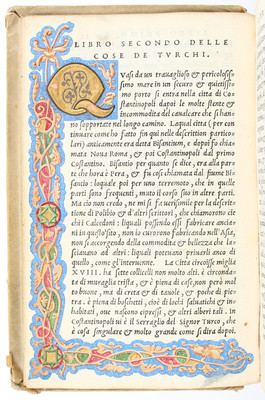 LIBRO SECONDO DELLE
COSE DE TVRCHI.
QVasi da un trauaglioso & pericolosis
simo mare in un securo & quietissi=
mo porto si entra nella citta di Co=
stantinopoli dapoi le molte stente &
incommodita del caualcare che si han=
no sopportate nel longo camino. Laqual citta (per con
tinuare come ho fatto sin qui nelle descrittion partico=
lari) anticamente era detta Bisantium, e dapoi fo chia
mata Noua Roma, & poi Costantinopoli dal primo
Costantino. Bisantio per quanto se dice, era alla par=
te che hora è Pera, & fu cosi chiamata dal fiume Bi=
santio: laquale poi per uno terremoto, che in quelle
parti sono frequenti, muto il corso suo in altre parti.
Ma cio non credo, ne mi se fa uerisimile per la descrit=
tione di Polibio & d'altri scrittori, che chiamorono cie
chi i Calcedonii: liquali possendo essi fabricare ancia=
ni in questo sito, non lo curorono fabricando nell'Asia,
non s'accorgendo della commodita & bellezza che la=
sciauano ad altri: liquali poteuano priuarli anco di
quello, come gl'interuenne. La Citta circoisse miglia
XVIII. ha sette collicelli non molto alti. è circonda=
ta di muraglia trista, & è piena di case, non però mol
to buone, ma di creta & di tauole, & poche di pie=
tra. è piena di boschetti, cioè di lochi saluatichi & in=
habitati, oue nascono cipressi, & altri alberi tali. In
Costantinopoli ui è il Serraglio del Signor Turco, che
è cosa singulare & molto grande come si dira dopoi.